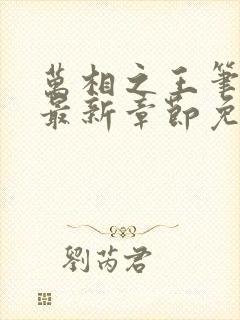 萬相之王筆
最新章節免
劉芮君